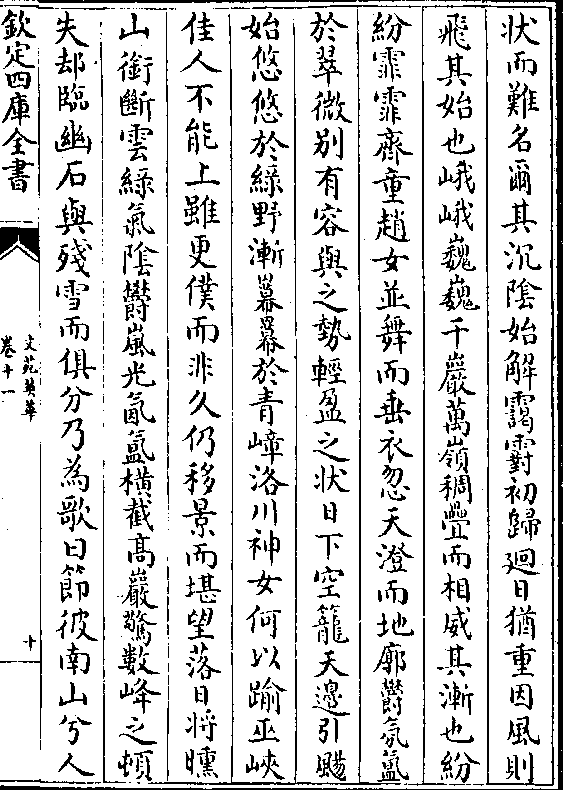 狀而難名爾其沉陰始解靄霸初歸迴日猶重因風則
飛其始也峨峨巍巍千巖萬嶺稠疊而相威其漸也紛
紛霏霏齊童趙女並舞而垂衣忽天澄而地廓鬱氛氳
於翠微别有容與之勢輕盈之状日下空籠天邊引颺
始悠悠於緑野漸羃羃於青嶂洛川神女何以踰巫峽
佳人不能上雖更僕而非久仍移景而堪望落日將曛
山銜斷雲緑氣陰鬱嵐光氤氲横截高巖驚數峰之頓
失却臨幽石與殘雪而俱分乃為歌曰節彼南山兮人
欽定四庫全書
文苑英華
卷十一
十